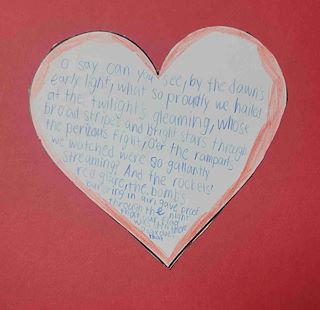 O say can you see, by the dawn's
early light, what so proudly we hailed
at the twilights gleaming, whose
broad stripes and bright stars through
the perilous fight, O'er the ramparts
we watched were so gallantly
streaming? And the rockets'
red glare, the bombs
bursting in air, gave proof
through the night
that our flag
was still there